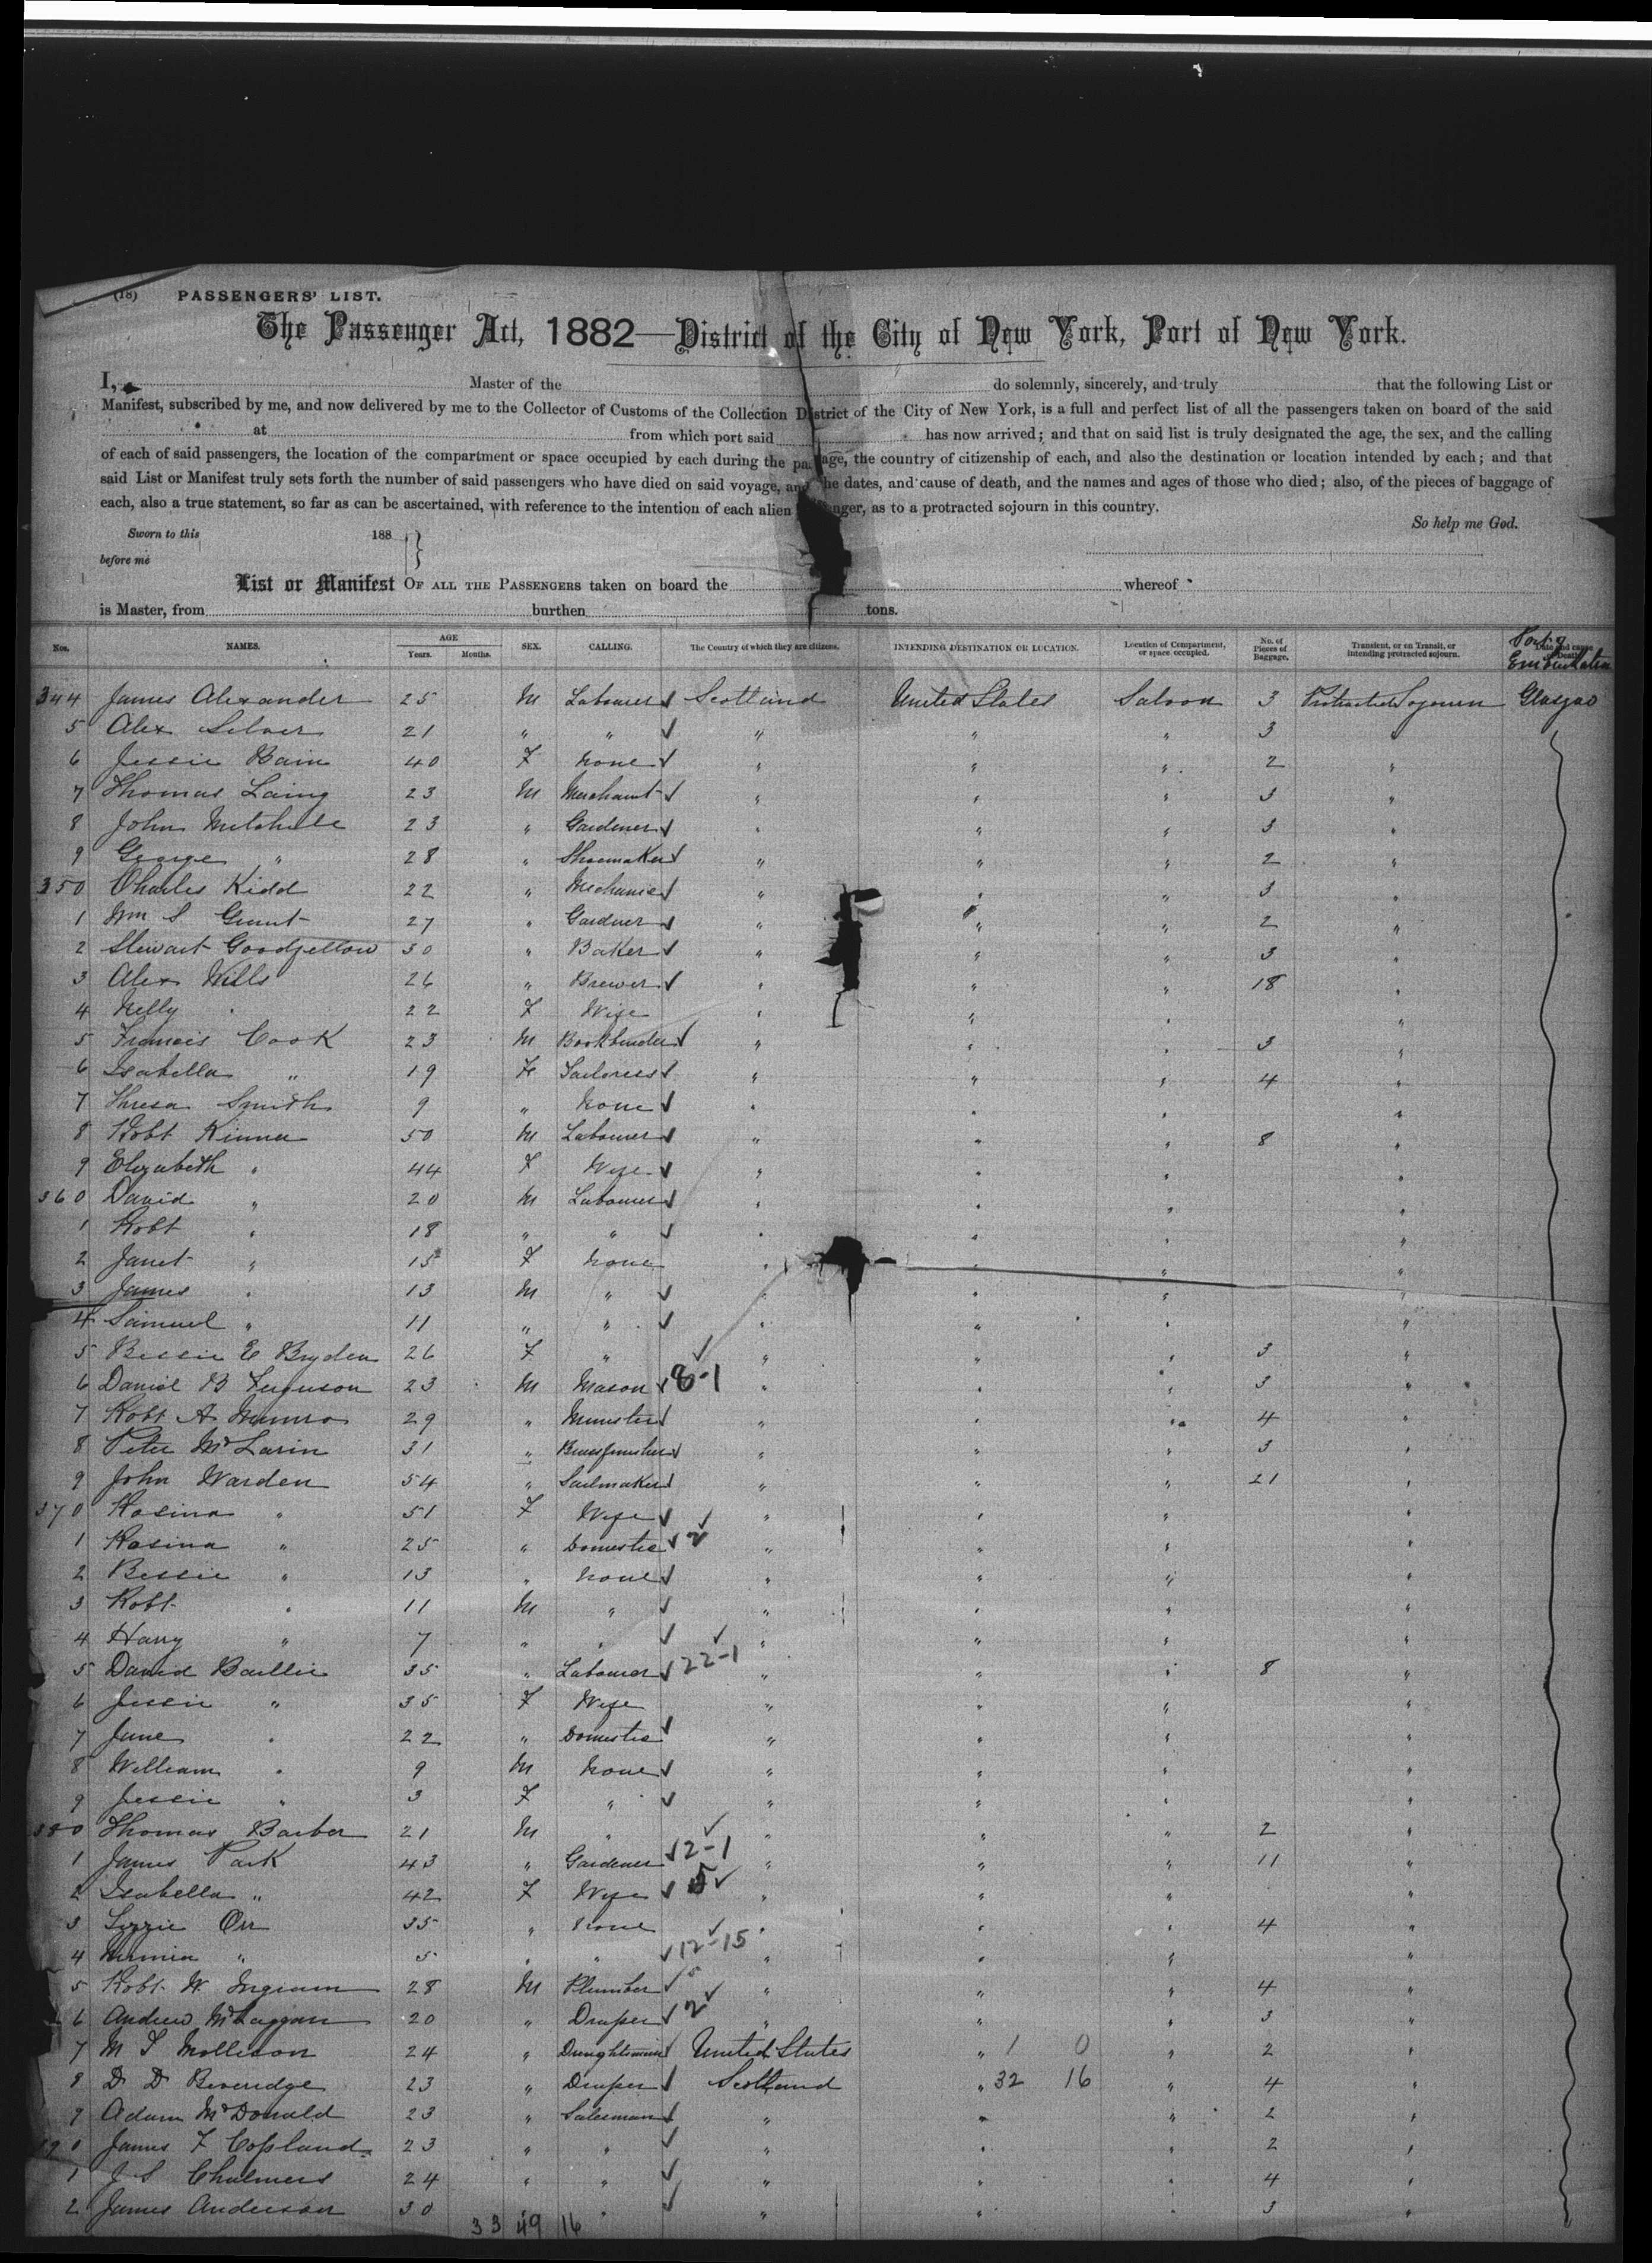 (18) PASSENGERS' LIST.
The Passenger Act, 1882—District of the City of New York, Port of New York.
I, Master of the do solemnly, sincerely, and truly that the following List or
Manifest, subscribed by me, and now delivered by me to the Collector of Customs of the Collection District of the City of New York, is a full and perfect list of all the passengers taken on board of the said
at from which port said has now arrived; and that on said list is truly designated the age, the sex, and the calling
of each of said passengers, the location of the compartment or space occupied by each during the pa age, the country of citizenship of each, and also the destination or location intended by each; and that
said List or Manifest truly sets forth the number of said passengers who have died on said voyage, and he dates, and cause of death, and the names and ages of those who died; also, of the pieces of baggage of
each, also a true statement, so far as can be ascertained, with reference to the intention of each alien enger, as to a protracted sojourn in this country.
So help me God.
Sworn to this 188
before me
List or Manifest OF ALL THE PASSENGERS taken on board the whereof
is Master, from burthen tons.
Nos. NAMES. AGE Years. Months. SEX. CALLING. The Country of which they are citizens. INTENDING DESTINATION OR LOCATION. Location of Compartment, or space occupied. No. of Pieces of Baggage. Transient, or on Transit, or intending protracted sojourn. Port of Embarkation
344 James Alexander 25 M Labourer Scotland United States Saloon 3 Protracted Sojourn Glasgow
5 Alex Silver 21 " " " " " 3 "
6 Jessie Bain 40 F None " " " 2 "
7 Thomas Laing 23 M Merchant " " " 3 "
8 John Mitchell 23 " Gardener " " " 3 "
9 George " 28 " Shoemaker " " " 2 "
350 Charles Kidd 22 " Mechanic " " " 3 "
1 Wm S Grant 27 " Gardner " " " 2 "
2 Stewart Goodfellow 30 " Baker " " " 3 "
3 Alex Wills 26 " Brewer " " " 18 "
4 Nelly " 22 F Wife " " " "
5 Francis Cook 23 M Bookbinder " " " 3 "
6 Isabella " 19 F Tailoress " " " 4 "
7 Thresa Smith 9 " None " " " "
8 Robt Kinnea 50 M Labourer " " " 8 "
9 Elizabeth " 44 F Wife " " " "
360 David " 20 M Labourer " " " "
1 Robt " 18 " " " " " "
2 Janet " 15 F None " " " "
3 James " 13 M " " " " "
4 Samuel " 11 " " " " " "
5 Bessie E Bryden 26 F " " " " 3 "
6 Daniel B Ferguson 23 M Mason 8-1 " " " 3 "
7 Robt A Munro 29 " Minister " " " 4 "
8 Peter McLarin 31 " Brassfinisher " " " 3 "
9 John Warden 54 " Sailmaker " " " 21 "
370 Rosina " 51 F Wife " " " "
1 Rosina " 25 " Domestic 2 " " " "
2 Bessie " 13 " None " " " "
3 Robt " 11 M " " " " "
4 Harry " 7 " " " " " "
5 David Baillie 35 " Labourer 22-1 " " " 8 "
6 Jessie " 35 F Wife " " " "
7 Jane " 22 " Domestic " " " "
8 William " 9 M None " " " "
9 Jessie " 3 F " " " " "
380 Thomas Barber 21 M " " " " 2 "
1 James Park 43 " Gardener 2-1 " " " 11 "
2 Isabella " 42 F Wife 5 " " " "
3 Lizzie Orr 35 " None " " " 4 "
4 " 5 " " 12-15 " " " "
5 Robt W Ingram 28 M Plumber " " " 4 "
6 Andrew McLaggan 20 " Draper 2 " " " 3 "
7 M T Mollison 24 " Draughtsman United States " 1 0 " 2 "
8 D D Beveridge 23 " Draper Scotland " 32 16 " 4 "
9 Adam McDonald 23 " Salesman " " " 2 "
390 James F Copland 23 " " " " " 2 "
1 J S Chalmers 24 " " " " " 4 "
2 James Anderson 30 " " " " 3 "
33 49 16